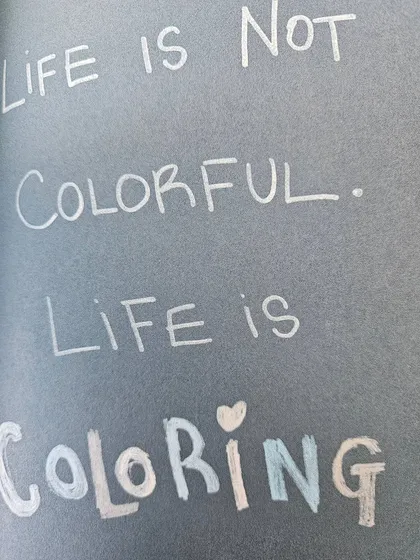 LiFE IS NOT
COLORFUL.
LiFE is
COLORiNG